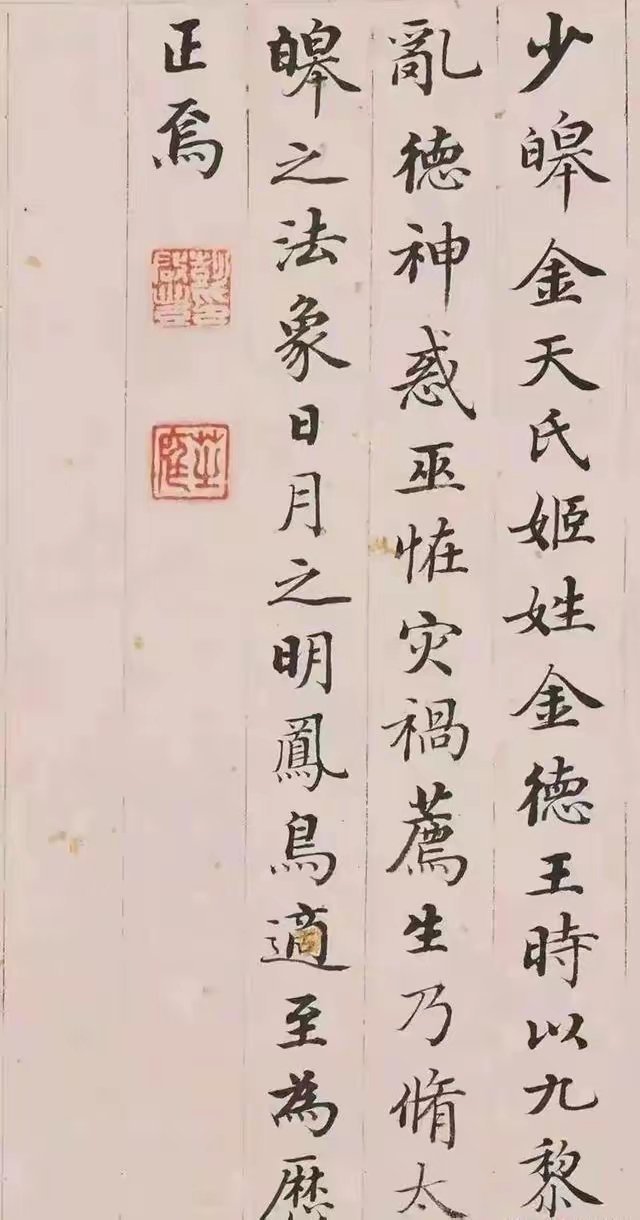 少皞金天氏姬姓金德王時以九黎
亂德神惑巫恠灾禍薦生乃脩太
皞之法象日月之明鳳鳥適至為
正焉